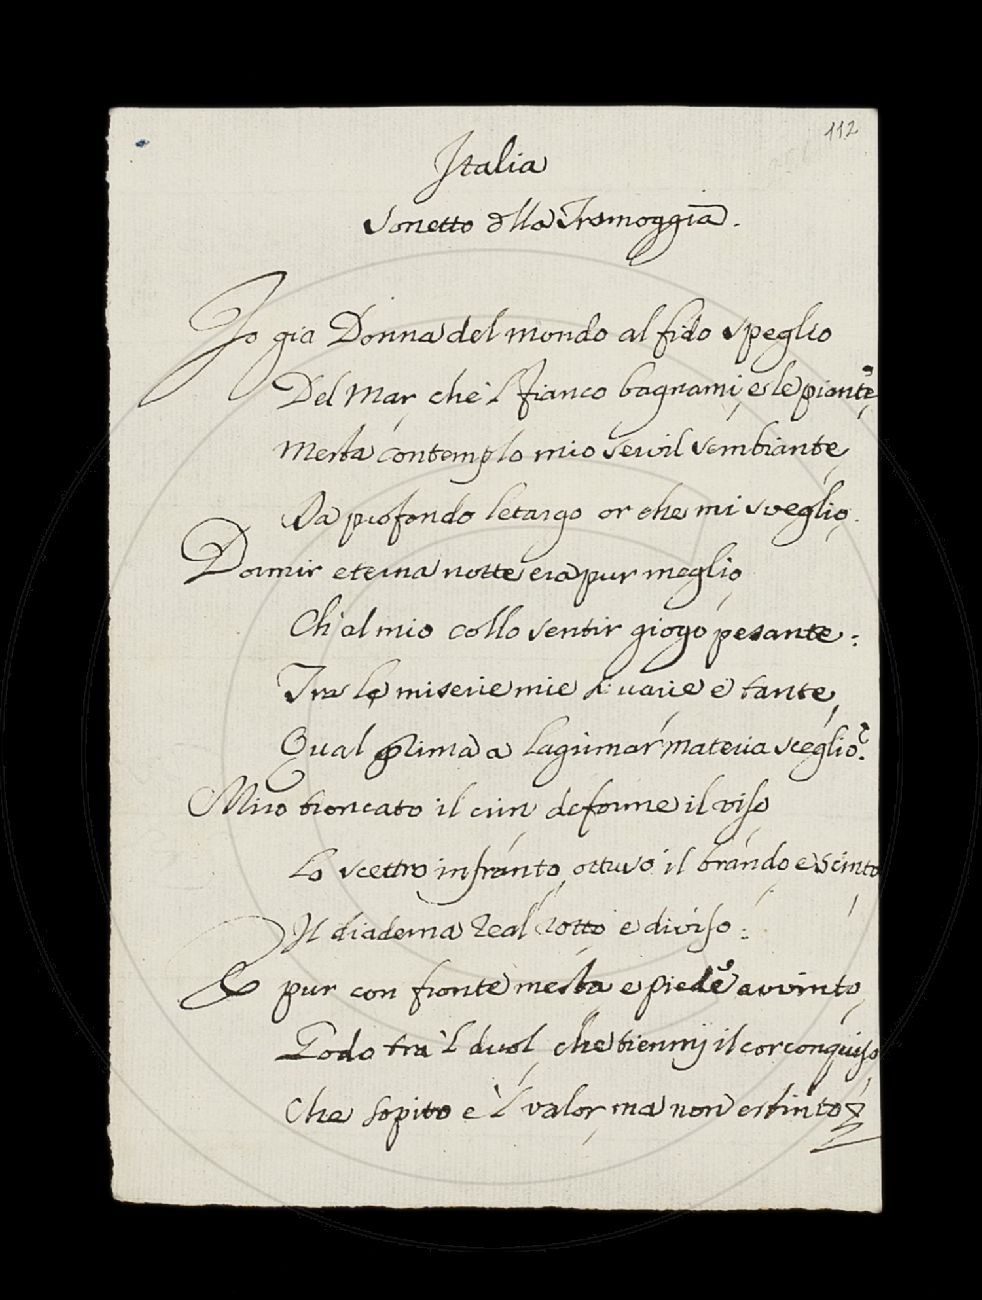 112
Italia
Sonetto dlla Tramoggia.
Io gia Donna del mondo al fido speglio
Del Mar, che 'l fianco bagnami, e le piante,
Mesta contemplo mio servil sembiante,
Da profondo letargo or che mi sveglio.
Dormir eterna notte era pur meglio,
Ch'al mio collo sentir giogo pesante:
Tra le miserie mie si varie e tante,
Qual prima a lagrimar materia sceglio?
Miro troncato il crin, deforme il viso,
Lo scettro infranto, ottuso il brando e scinto,
Il diadema real rotto e diviso:
E pur con fronte mesta e piede avvinto,
Godo tra 'l duol, che tiemmi il cor conquiso,
Che sopito e 'l valor, ma non estinto